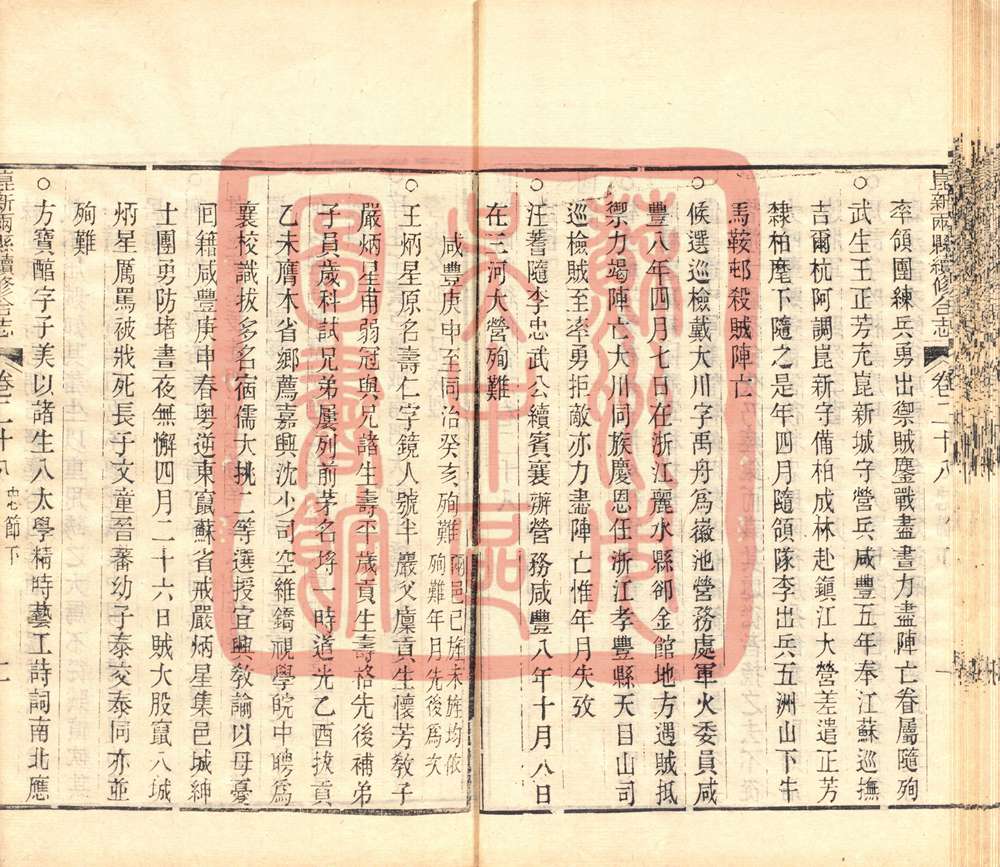 崑新兩縣續修合志 卷二十八
率領團練兵勇出禦賊鏖戰盡晝力盡陣亡眷屬隨殉
○武生王正芳充崑新城守營兵咸豐五年奉江蘇巡撫
吉爾杭阿調崑新守備柏成林赴鎭江大營差遣正芳
隸柏麾下隨之是年四月隨領隊李出兵五洲山下牛
馬鞍邨殺賊陣亡
○候選巡檢戴大川字禹舟爲嶽池營務處軍火委員咸
豐八年四月七日在浙江麗水縣卻金館地方遇賊抵
禦力竭陣亡大川同族慶恩任浙江孝豐縣天目山司
巡檢賊至率勇拒敵亦力盡陣亡惟年月失攷
○汪蓍隨李忠武公續賓襄辦營務咸豐八年十月八日
在三河大營殉難
咸豐庚申至同治癸亥殉難 兩邑已旌未旌均依殉難年月先後爲次
○王炳星原名壽仁字鏡人號半巖父廩貢生懷芳敎子
嚴炳星甫弱冠與兄諸生壽平歲貢生壽格先後補弟
子員歲科試兄弟屢列前茅名埒一時道光乙酉拔貢
乙未膺本省鄉薦嘉興沈少司空維鐈視學皖中聘爲
襄校識拔多名宿儒大挑二等選授宜興敎諭以母憂
囘籍咸豐庚申春粵逆東竄蘇省戒嚴炳星集邑城紳
士團勇防堵晝夜無懈四月二十六日賊大股竄入城
炳星厲罵被戕死長子文童晉蕃幼子泰交泰同亦並
殉難
○方寶館字子美以諸生入太學精時藝工詩詞南北應
崑新兩縣續修合志 卷二十八 忠節下 十一